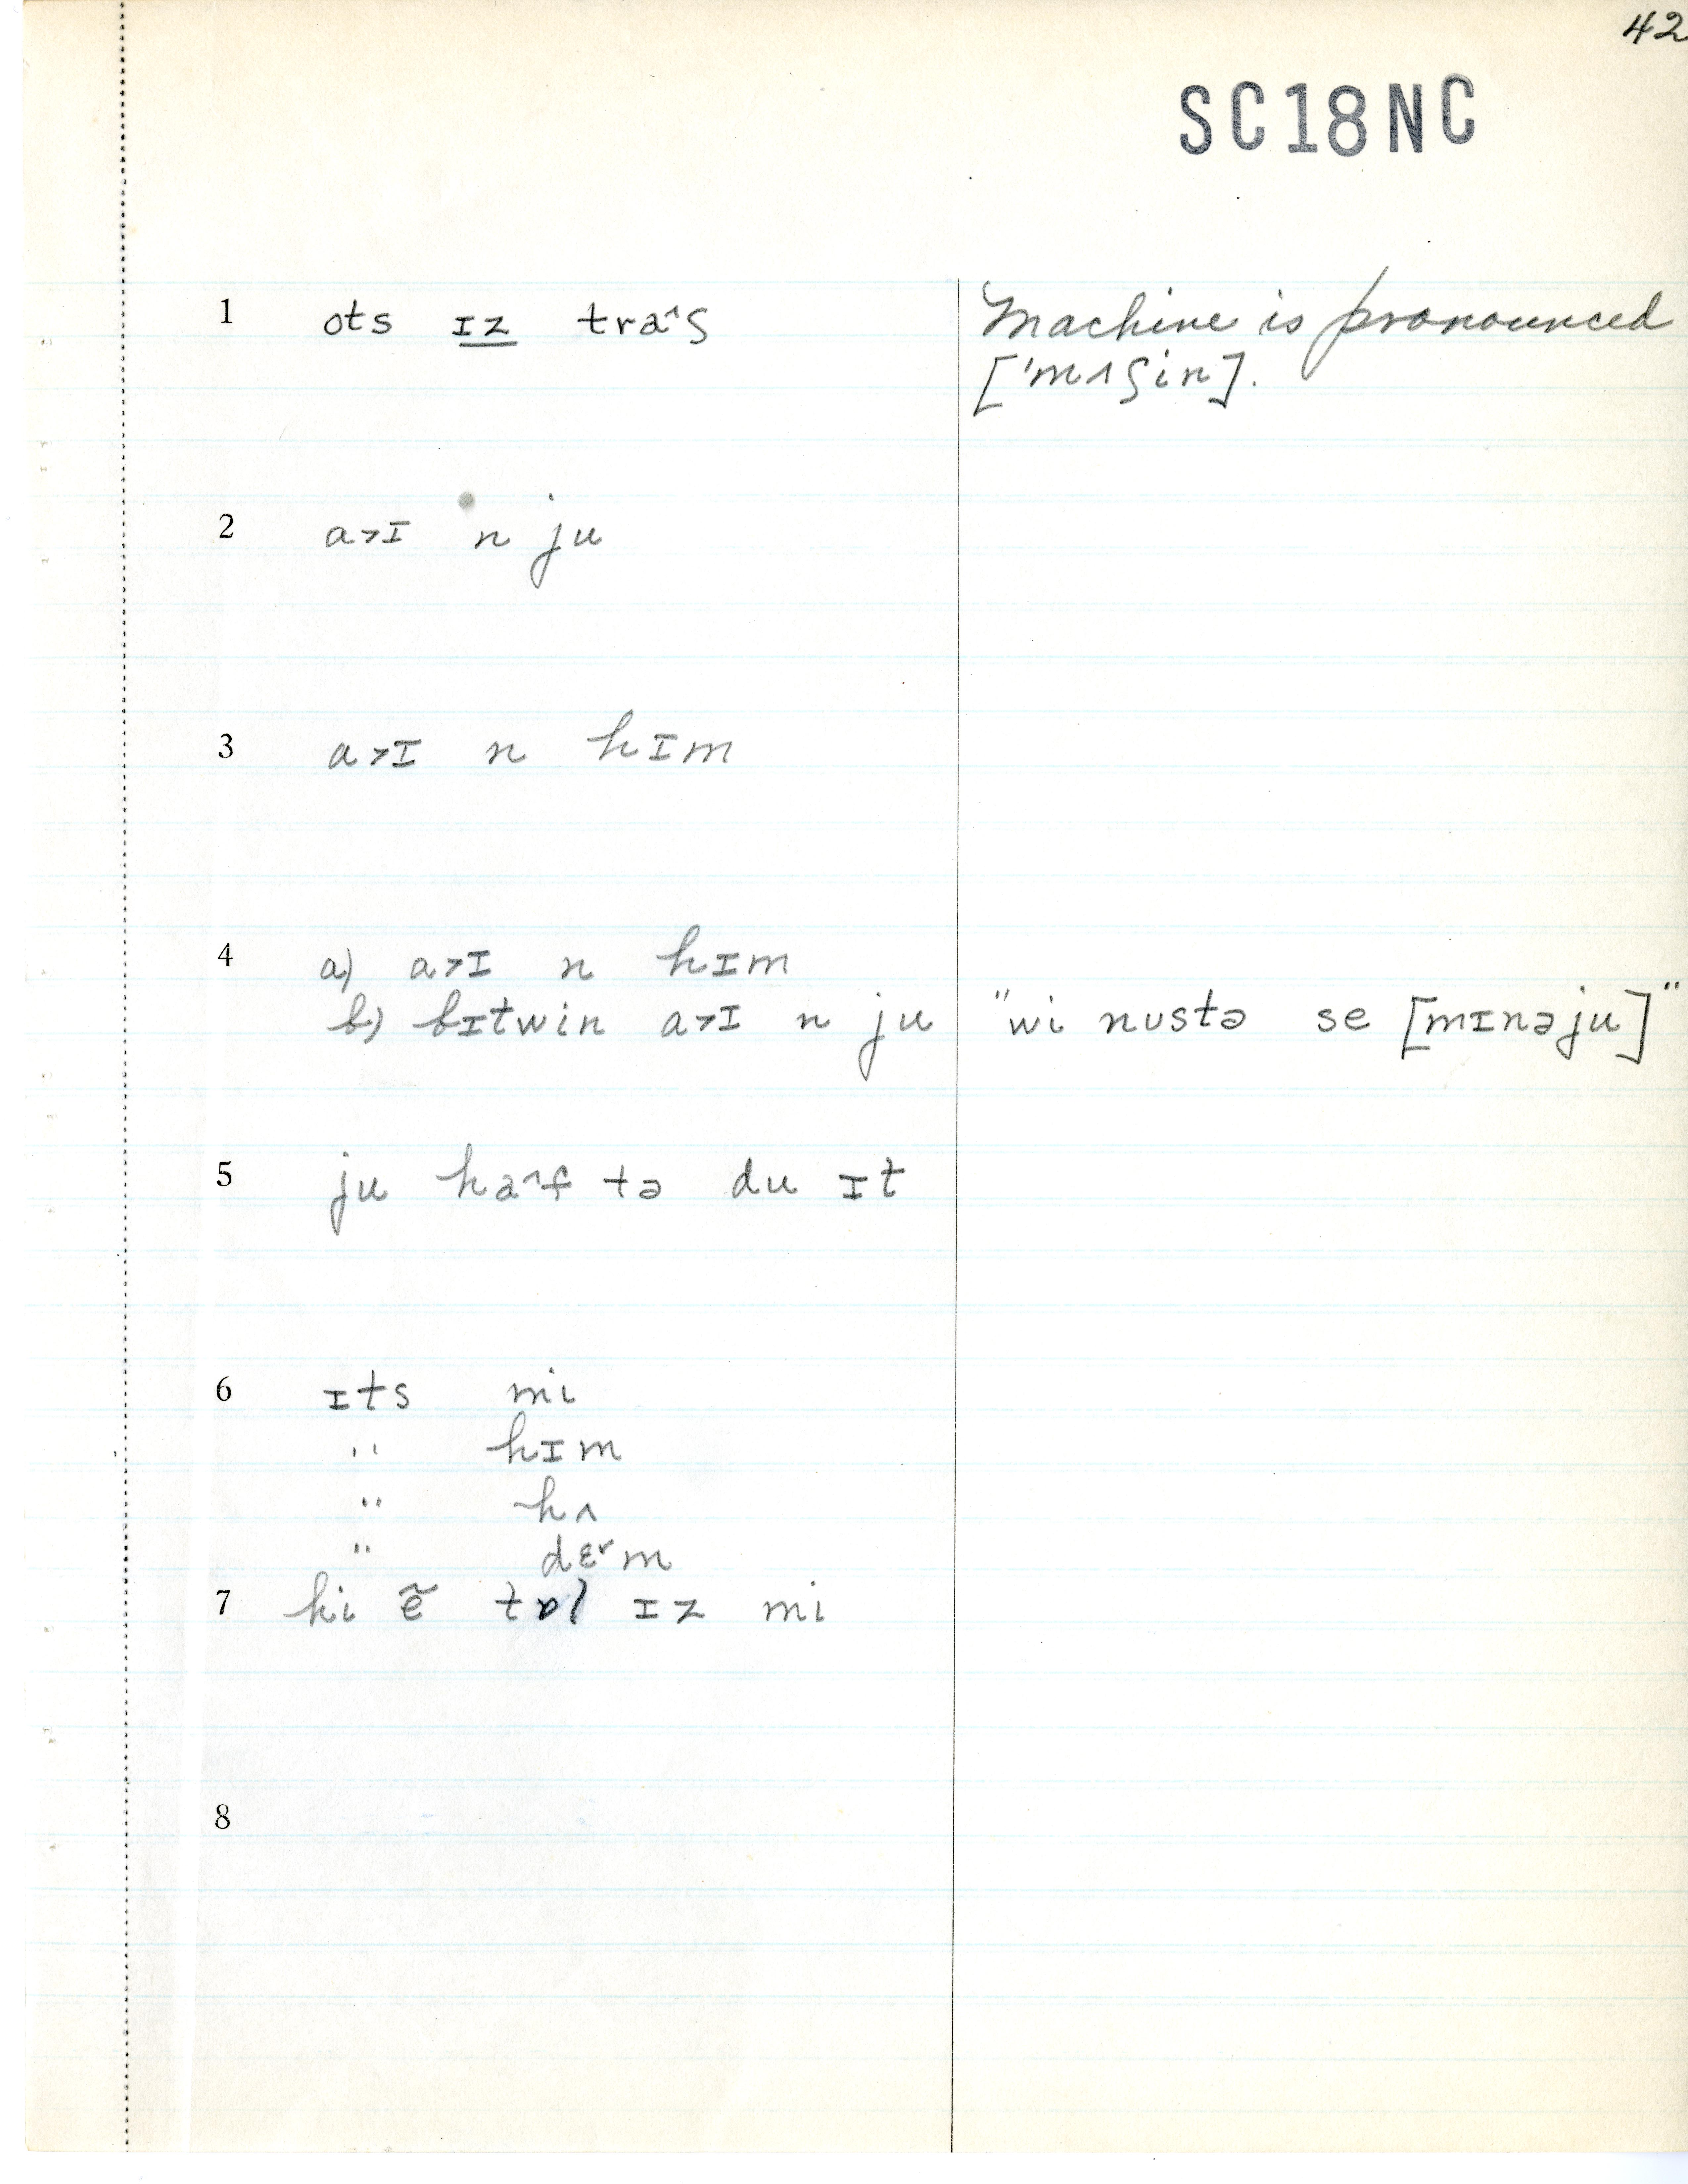 42
SC18NC
1 ots ɪz tra^ʃ
Machine is pronounced
['mʌʃin].
2 a>ɪ n ju
3 a>ɪ n hɪm
4 a) a>ɪ n hɪm
b) bɪtwin a>ɪ n ju "wi nustə se [mɪnəju]"
5 ju ha^f tə du ɪt
6 ɪts mi
" hɪm
" hʌ
" dɛ˞m
7 hi ẽ tɒl ɪz mi
8